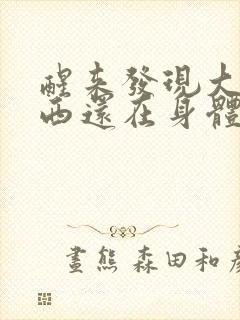 醒來發現大
西還在身體
畫熊 森田和彥